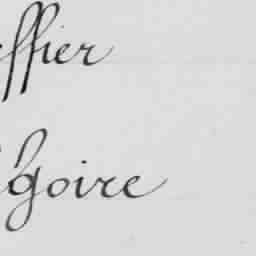 effier
égoire